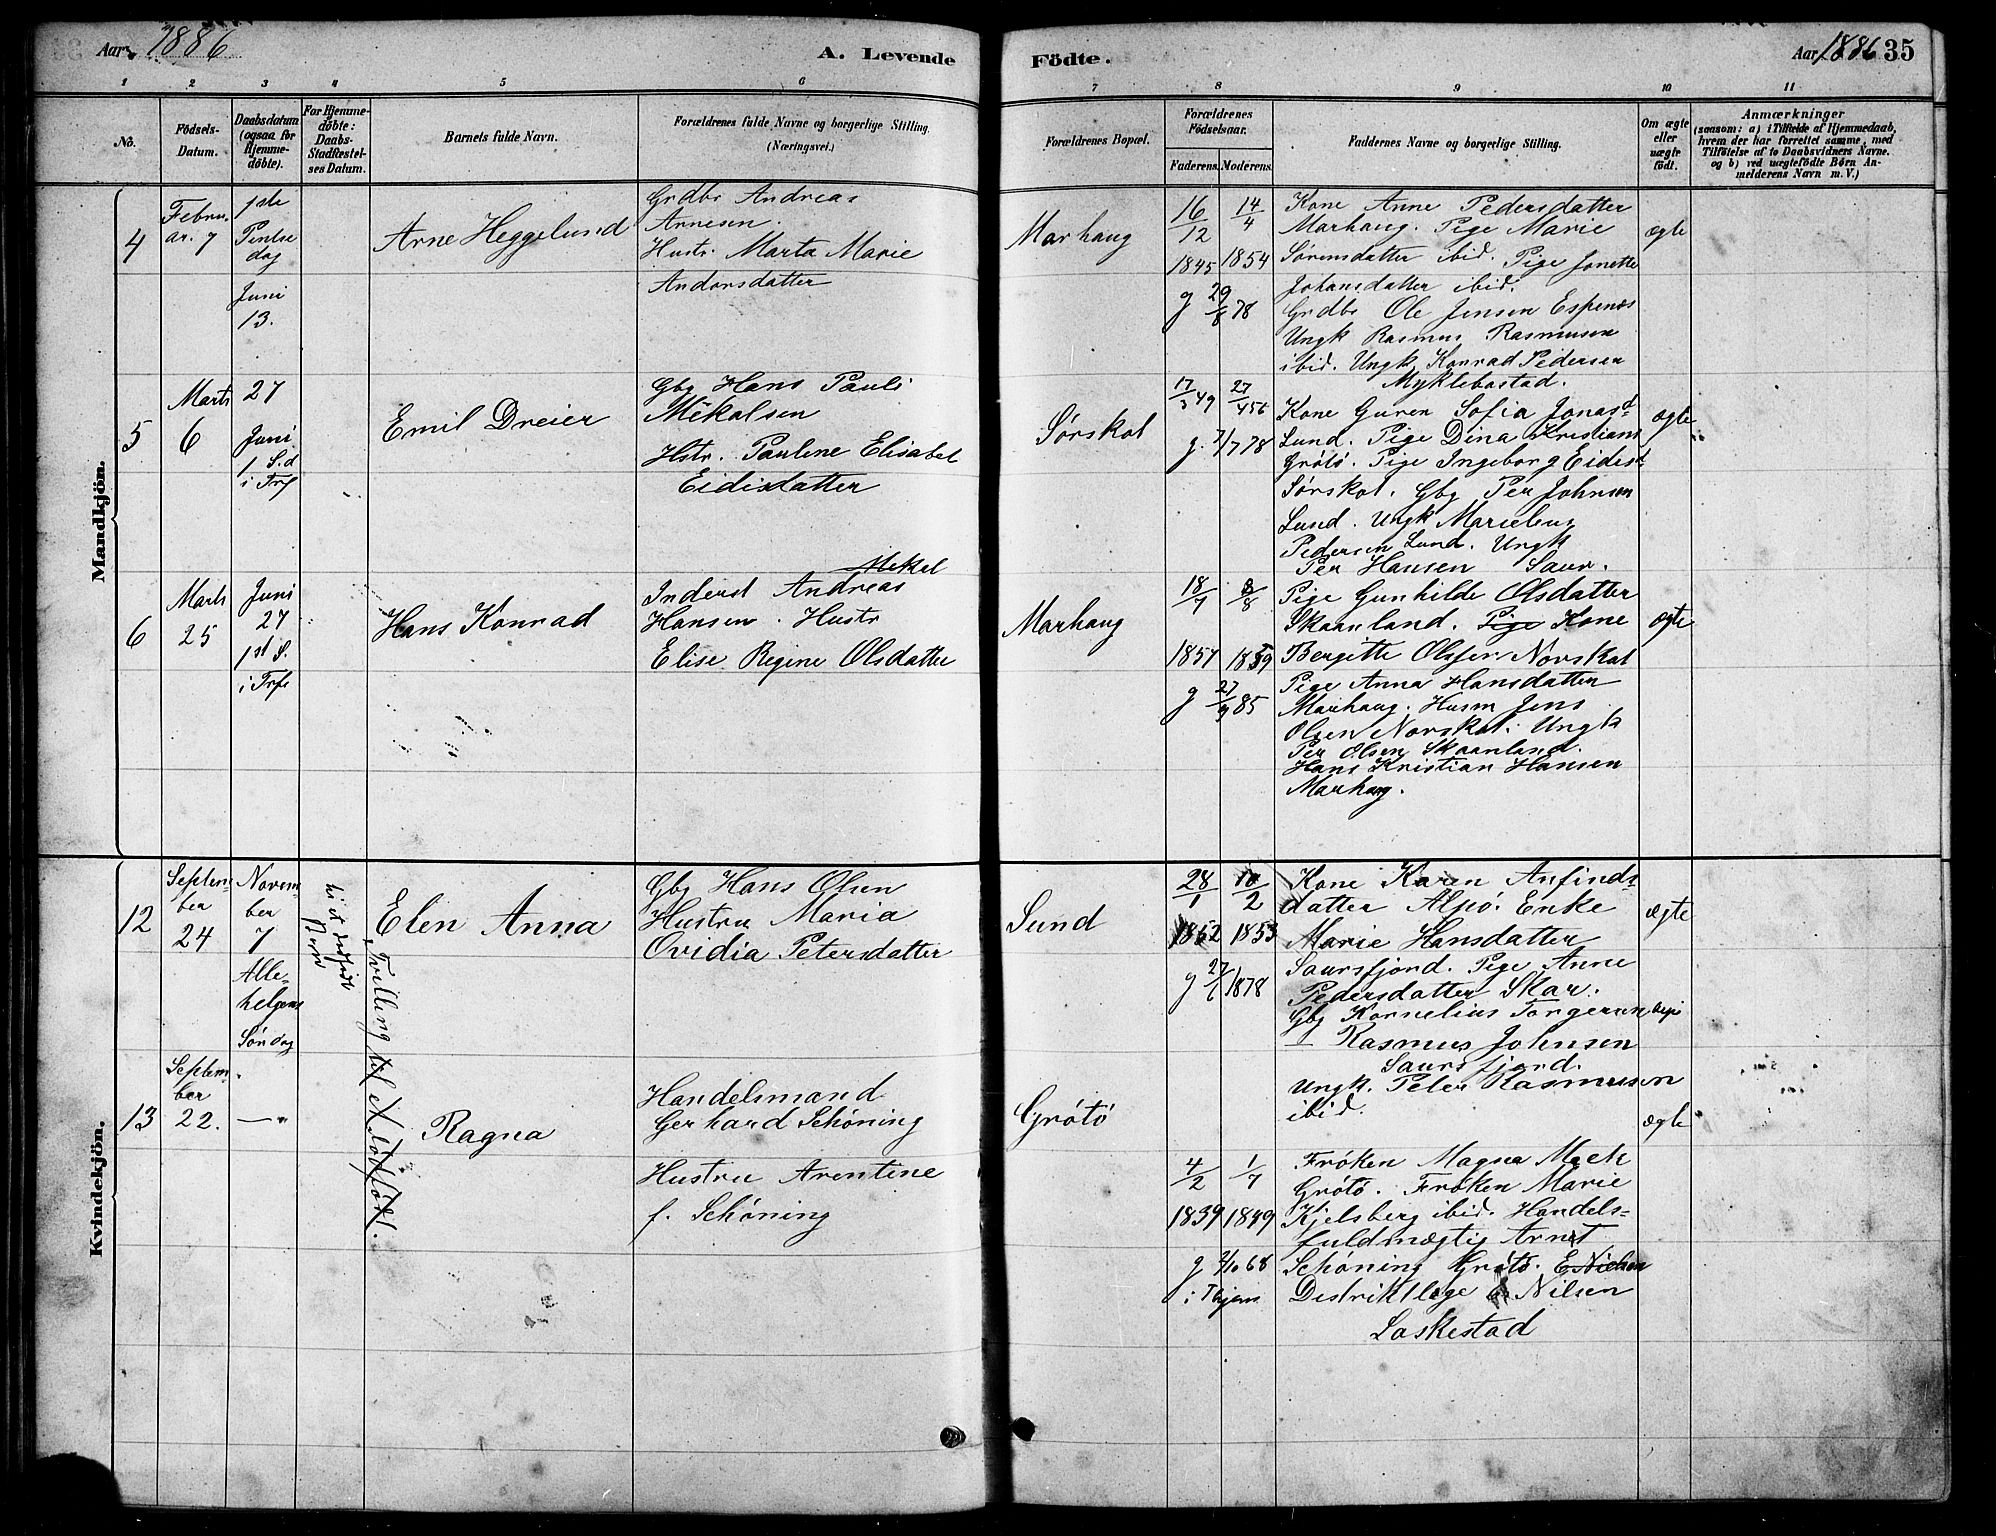 Aar 1886
A. Levende
Födte.
Aar 1886 35
1 2 3 4 5 6 7 8 9 10 11
No.
Födsels-
Datum.
Daabsdatum
(ogsaa for
Hjemme-
døbte).
For Hjemme-
døbte:
Daabs-
Stadfæstel-
ses Datum.
Barnets fulde Navn.
Forældrenes fulde Navne og borgerlige Stilling.
(Næringsvei.)
Forældrenes Bopæl.
Forældrenes
Födselsaar.
Faderens. Moderens.
Faddernes Navne og borgerlige Stilling.
Om ægte
eller
uægte
født.
Anmærkninger
(saasom: a) i Tilfælde af Hjemmedaab,
hvem der har forrettet samme, med
Tilföielse af to Daabsvidners Navne.
og b) ved uægtefödte Börn An-
melderens Navn m. V.)
Mandkjön.
4
Febru.
ar. 7
1ste
Pintse
dag
Juni
13.
Arne Heggelund
Grdbr Andreas
Arnesen.
Hustr. Marta Marie
Andorsdatter
Marhaug
16/12 14/4
1845 1854
g 29/8 78
Kone Anne Pedersdatter
Marhaug. Pige Marie
Sørensdatter ibid. Pige Jonette
Johansdatter ibid.
Grdbr Ole Jensen Espenæs
Ungk Rasmus Rasmusen
ibid. Ungk. Konrad Pedersen
Myklebostad.
ægte
5
Marts
6
27
Juni
1. S. d
i Trf
Emil Dreier
Gbg Hans Pauli
Mikalsen
Hstr. Pauline Elisabet
Eidisdatter
Sørskot
17/3 49 27/4 56
g. 7/7 78
Kone Guren Sofia Jonasd
Lund. Pige Dina Kristians
Grøtø. Pige Ingeborg Eidesd
Sørskot. Gbg Per Johnsen
Lund. Ungk
Pedersen Lund. Ungk
Per Hansen Saur.
ægte
6
Marts
25
Juni
27
1st S.
i Trf
Hans Konrad
Mekal
Inderst Andreas
Hansen. Hustr
Elise Regine Olsdatter
Marhaug
18/7 8/8
1857 1859
g 27/9 85
Pige Gunhilde Olsdatter
Skaanland. Pige Kone
Bergitte Olsen Norskot
Pige Anna Hansdatter
Marhaug. Husm Jens
Olsen Norskot. Ungk
Per Olsen Skaanland.
Hans Kristian Hansen
Marhaug.
ægte
Kvindekjön.
12
Septem-
ber
24
Novem-
ber
7
Alle-
helgens
Søndag
Tvilling til et dødfødt.
Elen Anna
Gbg Hans Olsen
Hustru Maria
Ovidia Petersdatter
Sund
28/1 10/2
1852 1853
g 27/ 1878
Kone Karen Anfinds-
datter Alpø. Enke
Marie Hansdatter
Saursfjord. Pige Anne
Pedersdatter Skar.
Gbg Kornelius Torgersen
— Rasmus Johnsen
Saursfjord.
Ungk. Peter Rasmusen
ibid.
ægte
13
Septem-
ber
22.
— "
Ragna
Handelsmand
Gerhard Schøning
Hustru Arentine
f. Schøning
Grøtø
4/2 1/7
1839 1849
g 2/10 68
Frøken Magna Mack
Grøtø. Frøken Marie
Kjelsberg ibid. Handels-
fuldmægtig Arnt
Schøning Grøtø. E Nielsen
Distriktlæge Nilsen
Laskestad
ægte